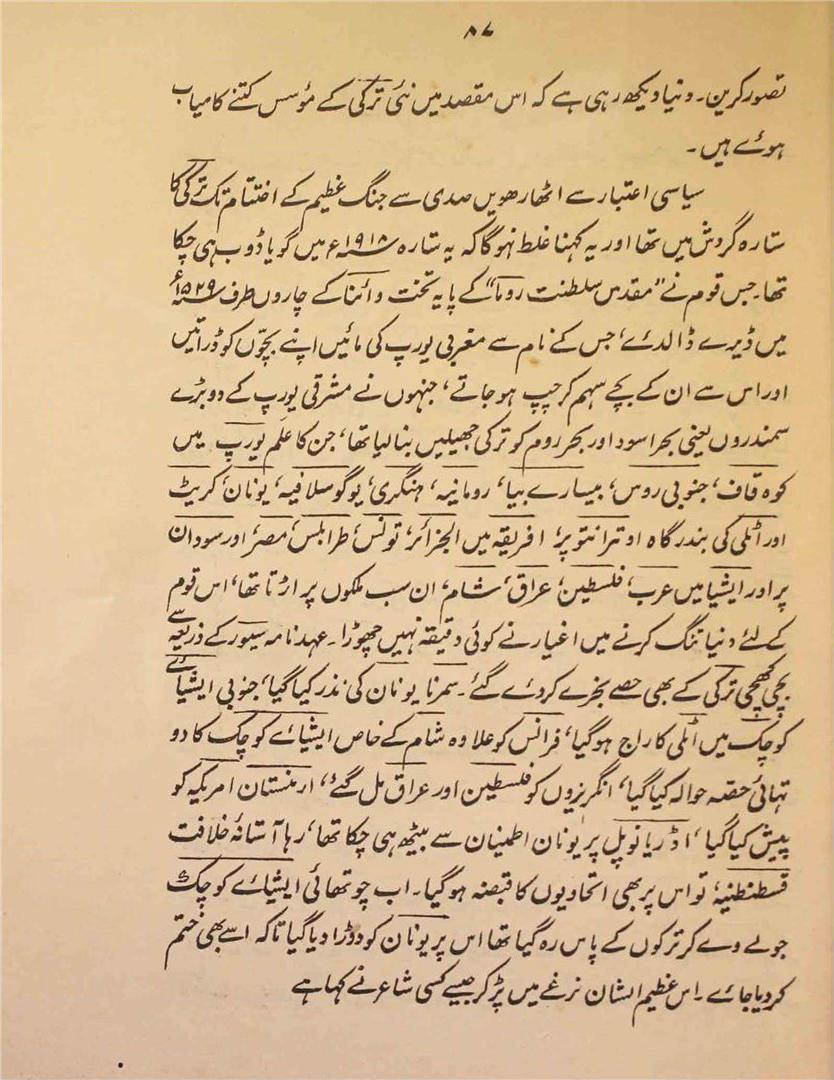 ۸۷
تصور کرین۔ دنیا دیکھ رہی ہے کہ اس مقصد میں نئی ترکی کے مؤسس کتنے کامیاب
ہوئے ہیں۔
سیاسی اعتبار سے اٹھارھویں صدی سے جنگ عظیم کے اختتام تک ترکی کا
ستارہ گردش میں تھا اور یہ کہنا غلط نہوگا کہ یہ ستارہ ۱۹۱۸ء میں گویا ڈوب ہی چکا
تھا۔ جس قوم نے "مقدس سلطنت روما" کے پایہ تخت وائنا کے چاروں طرف ۱۵۲۹ء
میں ڈیرے ڈالدئے، جس کے نام سے مغربی یورپ کی مائیں اپنے بچّوں کو ڈراتیں
اور اس سے ان کے بچے سہم کر چپ ہو جاتے، جنہوں نے مشرقی یورپ کے دو بڑے
سمندروں یعنی بحر اسود اور بحر روم کو ترکی جھیلیں بنا لیا تھا، جن کا علَم یورپ میں
کوہ قاف، جنوبی روس، بیسارے بیا، رومانیہ، ہنگری، یوگوسلافیہ، یونان، کریٹ
اور اٹلی کی بندرگاہ اوترانتو پر، افریقہ میں الجزائر، تونس، طرابلس، مصر، اور سودان
پر اور ایشیا میں عرب، فلسطین، عراق، شام، ان سب ملکوں پر اڑتا تھا، اس قوم
کے لئے دنیا تنگ کرنے میں اغیار نے کوئی دقیقہ نہیں چھوڑا۔ عہدنامہ سیور کے ذریعہ سے
بچی کھچی ترکی کے بھی حصے بخرے کر دئے گئے۔ سمرنا یونان کی نذر کیا گیا، جنوبی ایشیائے
کوچک میں اٹلی کا راج ہوگیا، فرانس کو علاوہ شام کے خاص ایشیائے کوچک کا دو
تہائی حصہ حوالہ کیا گیا، انگریزوں کو فلسطین اور عراق مل گئے، ارمنستان امریکہ کو
پیش کیا گیا، اڈریانوپل پر یونان اطمینان سے بیٹھ ہی چکا تھا، رہا آستانۂ خلافت
قسطنطنیہ، تو اس پر بھی اتحادیوں کا قبضہ ہوگیا۔ اب چوتھائی ایشیائے کوچک
جو لے دے کر ترکوں کے پاس رہ گیا تھا اس پر یونان کو دوڑا دیا گیا تاکہ اسے بھی ختم
کر دیا جائے۔ اس عظیم الشان نرغے میں پڑ کر جیسے کسی شاعر نے کہا ہے